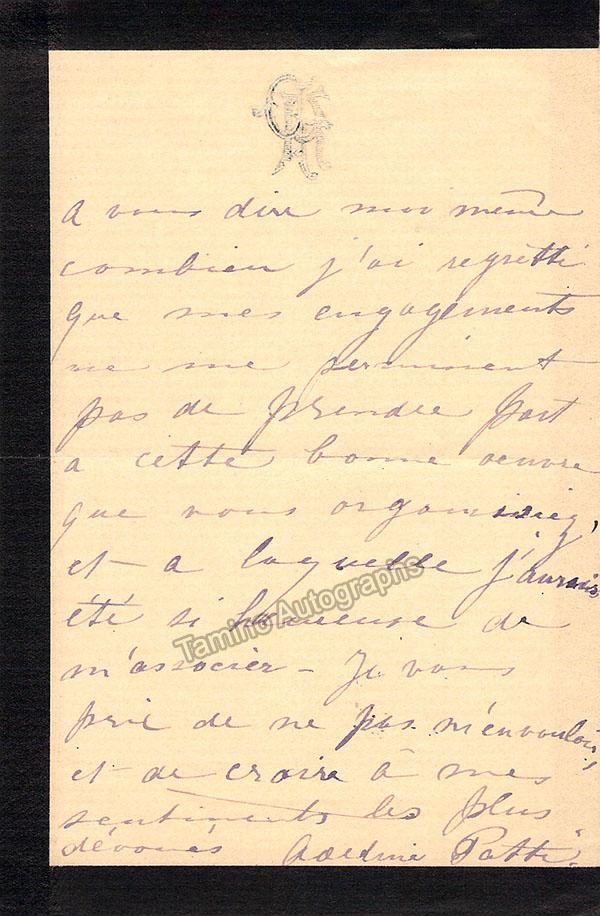 a vous dire moi même
combien j'ai regretté
que mes engagements
ne me permissent
pas de prendre part
a cette bonne oeuvre
que vous organisiez,
et a laquelle j'aurais
été si heureuse de
m'associer – Je vous
prie de ne pas m'en vouloir,
et de croire à mes
sentiments les plus
dévoués Adelina Patti.
Tamino Autographs